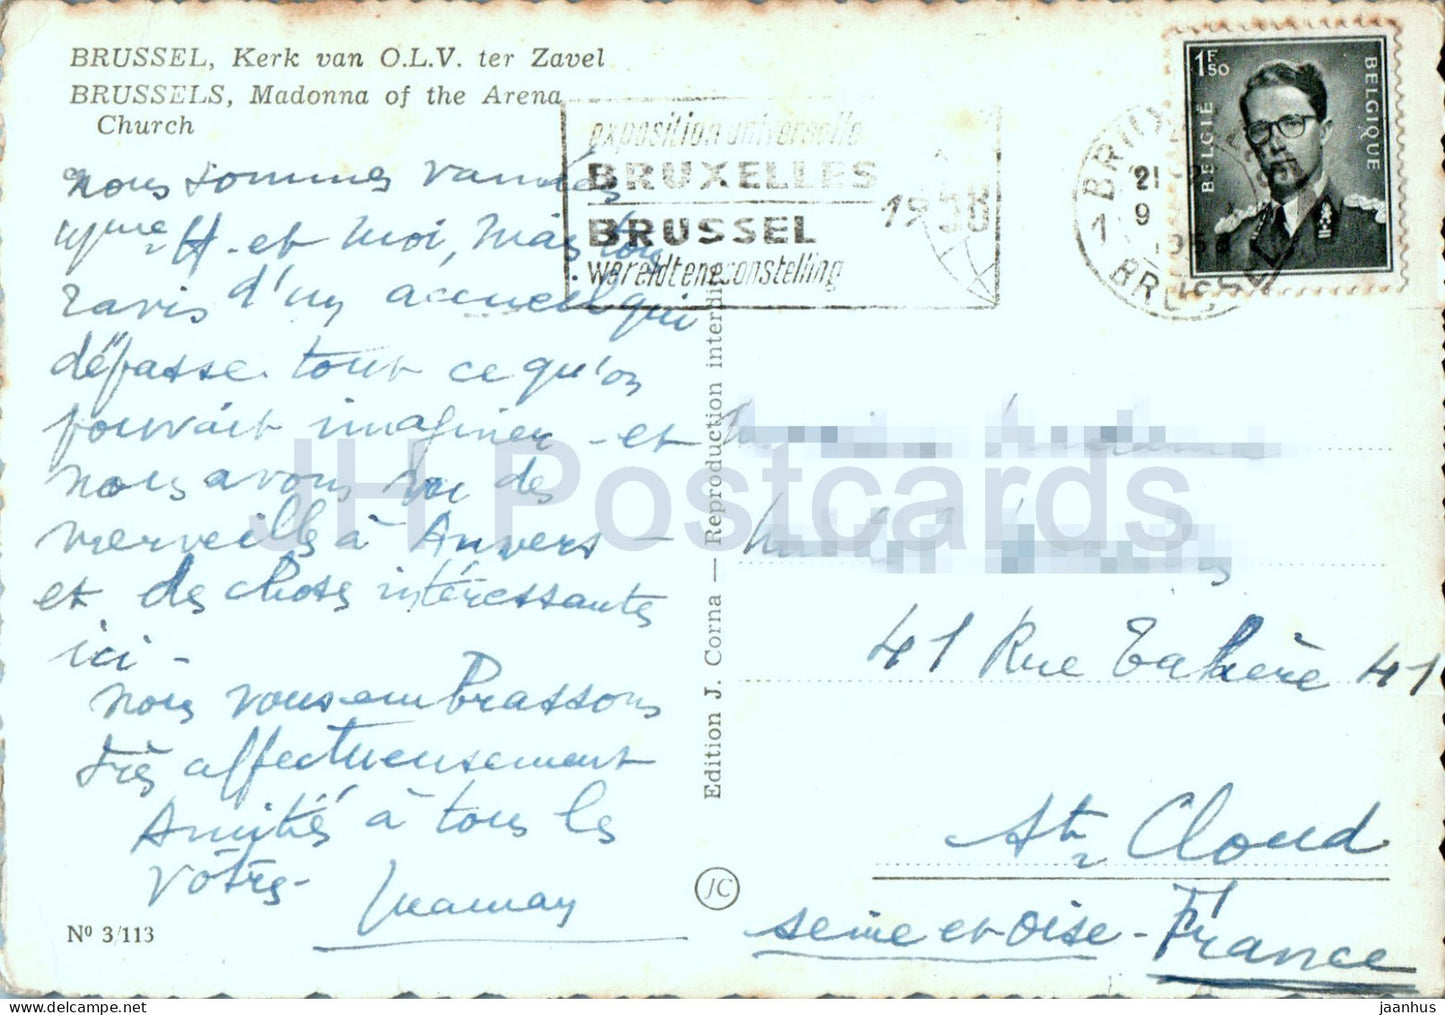 BRUSSEL, Kerk van O.L.V. ter Zavel
BRUSSELS, Madonna of the Arena
Church
nous sommes vannées
Mme H. et moi, mais tous
ravis d'un accueil qui
dépasse tout ce qu'on
pouvait imaginer - et
nous avons vu des
merveilles à Anvers -
et des choses intéressantes
ici -
nous vous embrassons
très affectueusement
Amitiés à tous les
vôtres -
Mamay
Nº 3/113
exposition universelle
BRUXELLES
BRUSSEL
wereldtentoonstelling
1958
Edition J. Corna — Reproduction interdite
JC
1F50
BELGIË
BELGIQUE
21
9
1
BRUSSEL
41 Rue 41
St Cloud
seine et oise - France
JH Postcards
jaanhus | HipPostcard.com